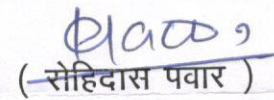 ( रोहिदास पवार )